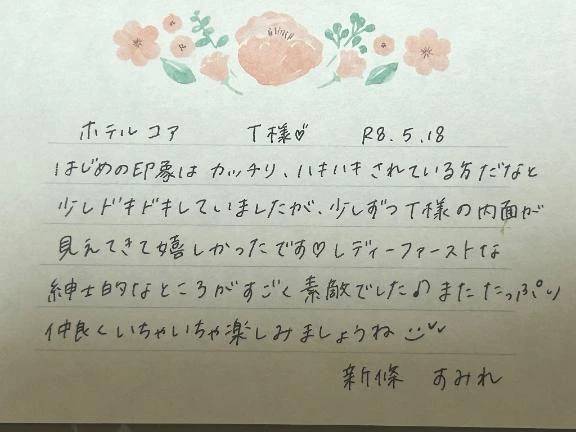 ホテルコア T様♡ R8.5.18
はじめの印象はカッチリ、ハキハキされている方だなと
少しドキドキしていましたが、少しずつT様の内面が
見えてきて嬉しかったです♡レディーファーストな
紳士的なところがすごく素敵でした♪またたっぷり
仲良くいちゃいちゃ楽しみましょうね
新條 すみれ